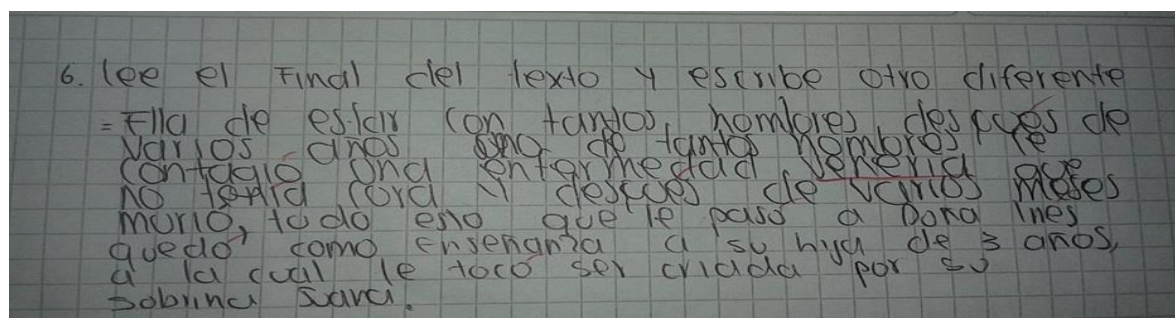 6. lee el Final del texto y escribe otro diferente
= Ella de estar con tantos hombres después de
varios años uno de tantos hombres le
contagió una enfermedad veneria que
no tenia cora y después de varios meses
murio, todo eso que le paso a Dona Ines
quedó como enseñanza a su hija de 3 años,
a la cual le tocó ser criada por su
sobrina Sara.